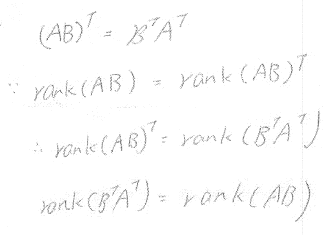 (AB)ᵀ = BᵀAᵀ
∵ rank(AB) = rank(AB)ᵀ
∴ rank(AB)ᵀ = rank(BᵀAᵀ)
rank(BᵀAᵀ) = rank(AB)